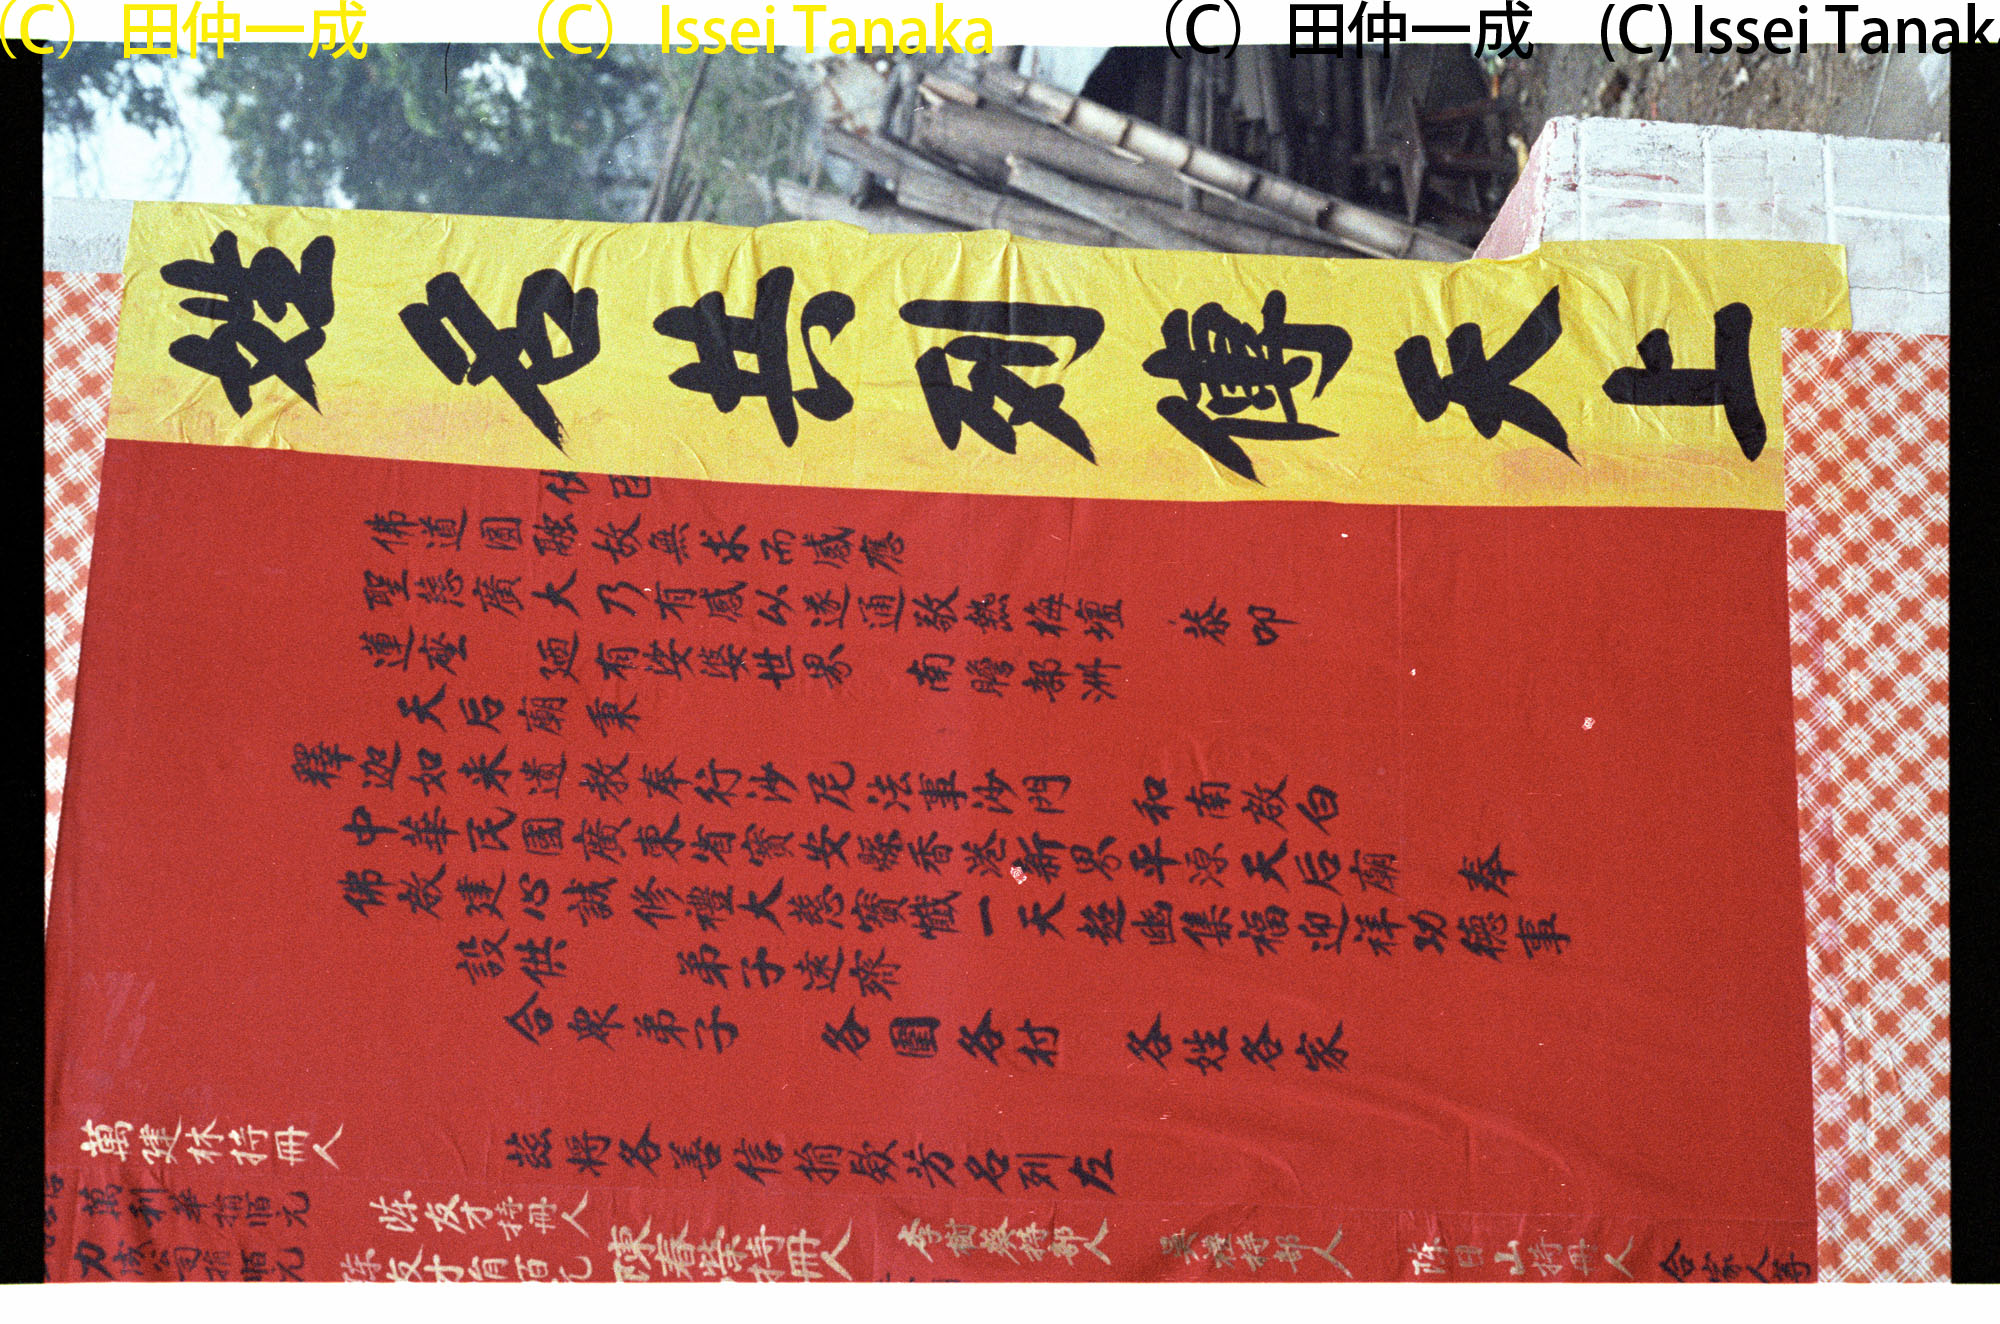 (C) 田仲一成 (C) Issei Tanaka (C) 田仲一成 (C) Issei Tanaka
姓名共列傳天上
佛道圓融故無求而感應
聖慈廣大乃有感以遂通敬熱梅壇 恭叩
蓮座 廼有娑婆世界 南瞻部洲
天后廟秉
釋迦如來遺教奉行沙尼法事沙門 和南啟白
中華民國廣東省寶安縣香港新界平源天后廟 奉
佛啟建心誠修禮大慈寶懺一天超幽集福迎祥功德事
設供 弟子遠齋
合眾弟子 各圍各村 各姓各家
茲將各善信捐款芳名列左
萬進林持冊人
萬利華捐百元
陳友才持冊人
陳友才捐百元
陳春榮持冊人
陳日山持冊人
合家人等